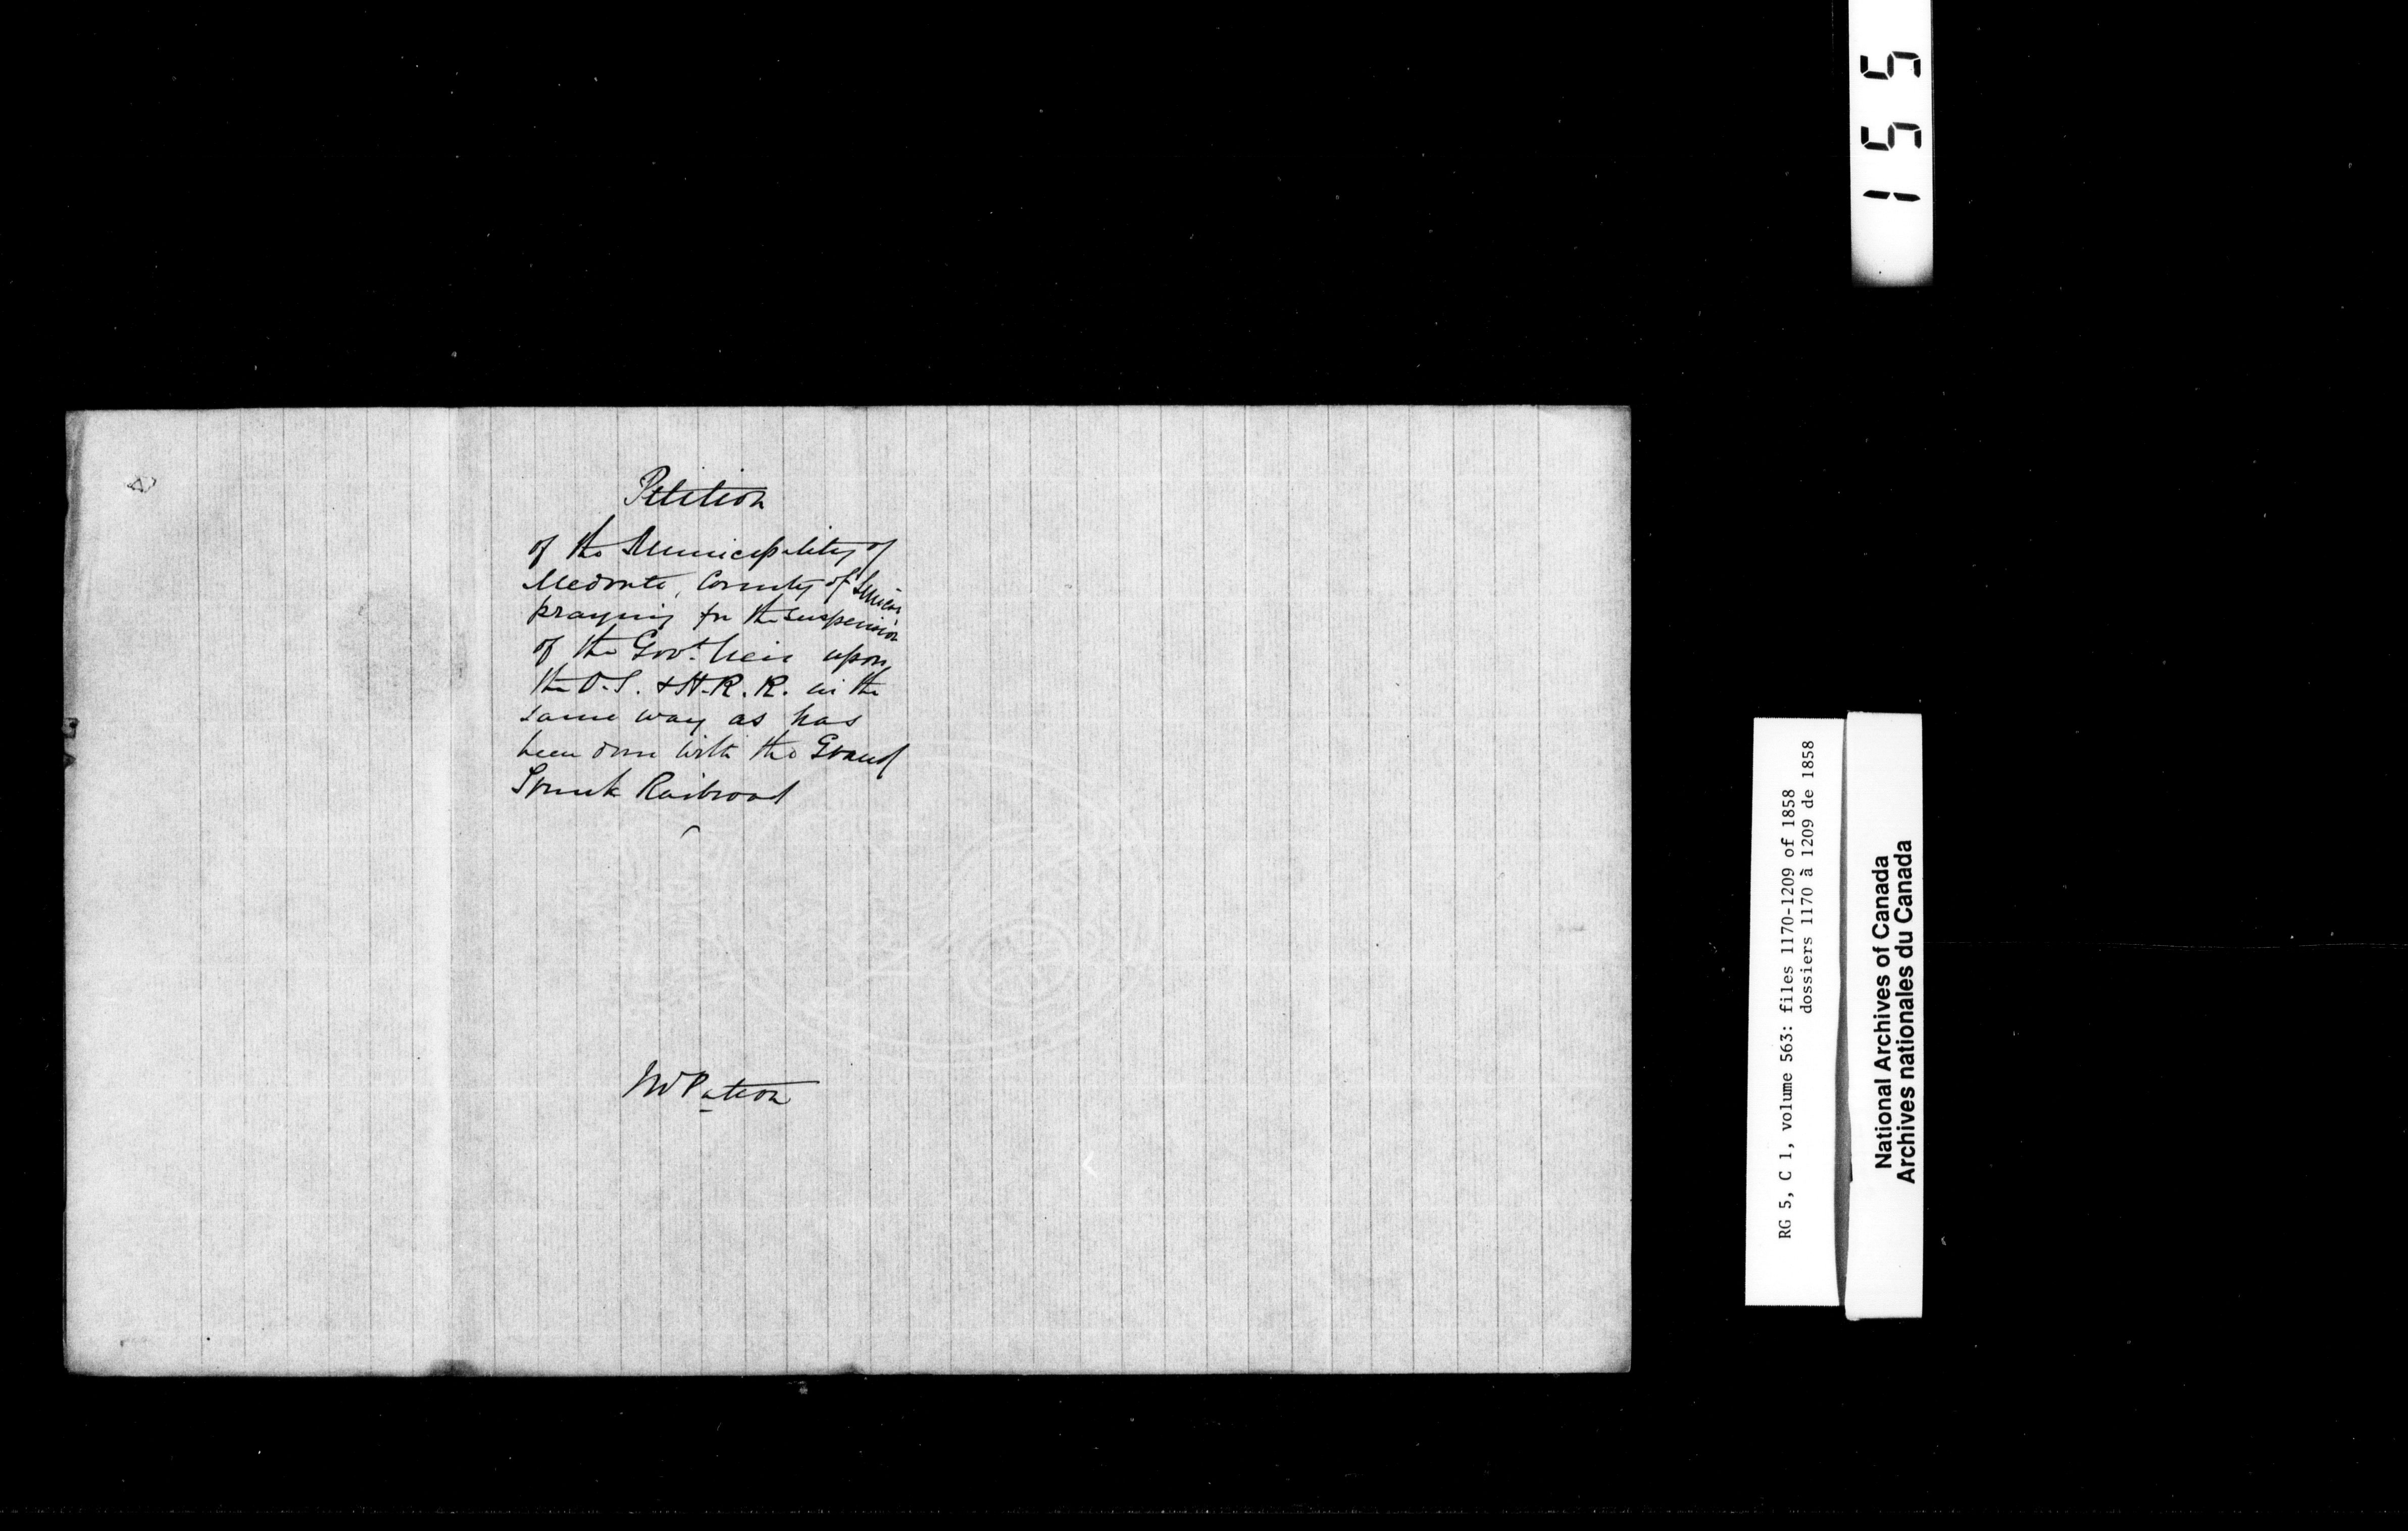 Petition
of the Municipality of
Medonte, County of Simcoe
praying for the suspension
of the Govt. lien upon
the O.S. & H.R.R. in the
same way as has
been done with the Grand
Trunk Railroad
Mr Paton
155
RG 5, C 1, volume 563: files 1170-1209 of 1858
dossiers 1170 à 1209 de 1858
National Archives of Canada
Archives nationales du Canada